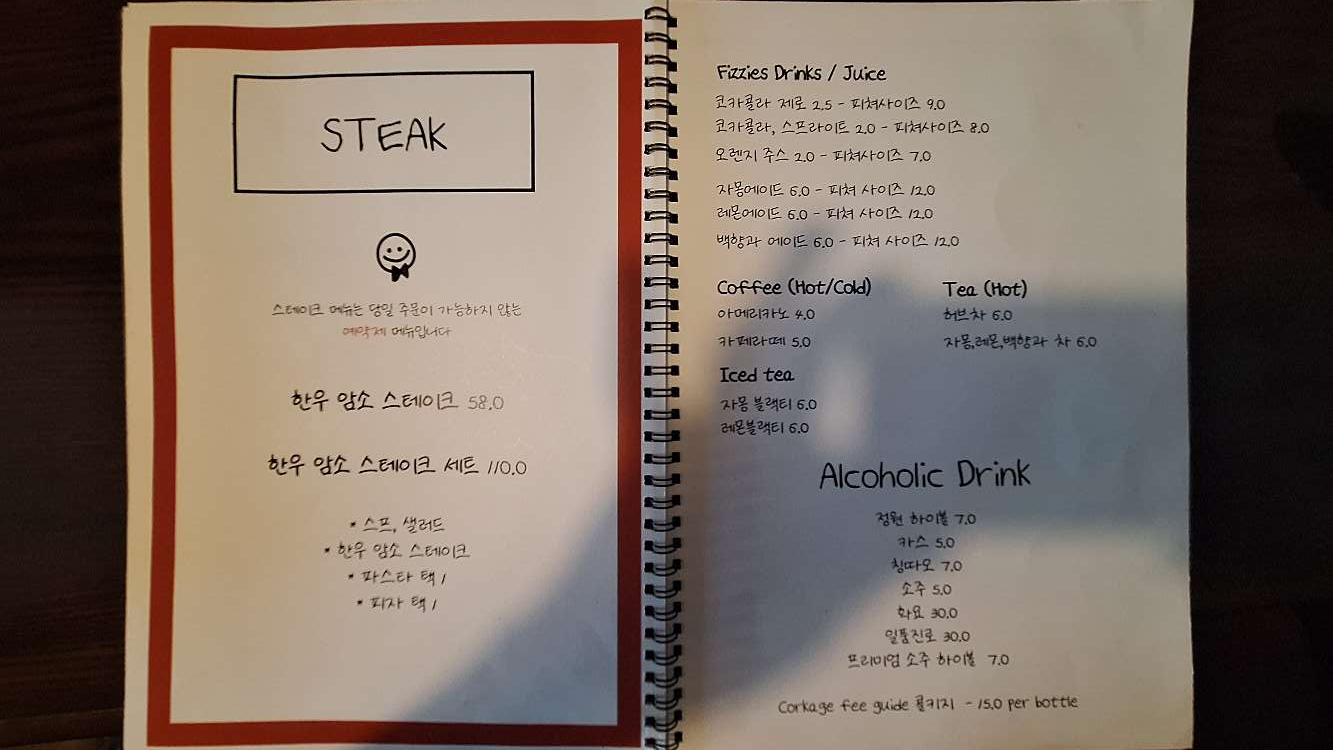 STEAK
스테이크 메뉴는 당일 주문이 가능하지 않는
예약제 메뉴입니다
한우 암소 스테이크 58.0
한우 암소 스테이크 세트 110.0
* 스프, 샐러드
* 한우 암소 스테이크
* 파스타 택 1
* 피자 택 1
Fizzies Drinks / Juice
코카콜라 제로 2.5 - 피쳐사이즈 9.0
코카콜라, 스프라이트 2.0 - 피쳐사이즈 8.0
오렌지 주스 2.0 - 피쳐사이즈 7.0
자몽에이드 6.0 - 피쳐 사이즈 12.0
레몬에이드 6.0 - 피쳐 사이즈 12.0
백향과 에이드 6.0 - 피쳐 사이즈 12.0
Coffee (Hot/Cold)
아메리카노 4.0
카페라떼 5.0
Tea (Hot)
허브차 6.0
자몽,레몬,백향과 차 6.0
Iced tea
자몽 블랙티 6.0
레몬블랙티 6.0
Alcoholic Drink
정원 하이볼 7.0
카스 5.0
칭따오 7.0
소주 5.0
화요 30.0
일품진로 30.0
프리미엄 소주 하이볼 7.0
Corkage fee guide 콜키지 - 15.0 per bottle